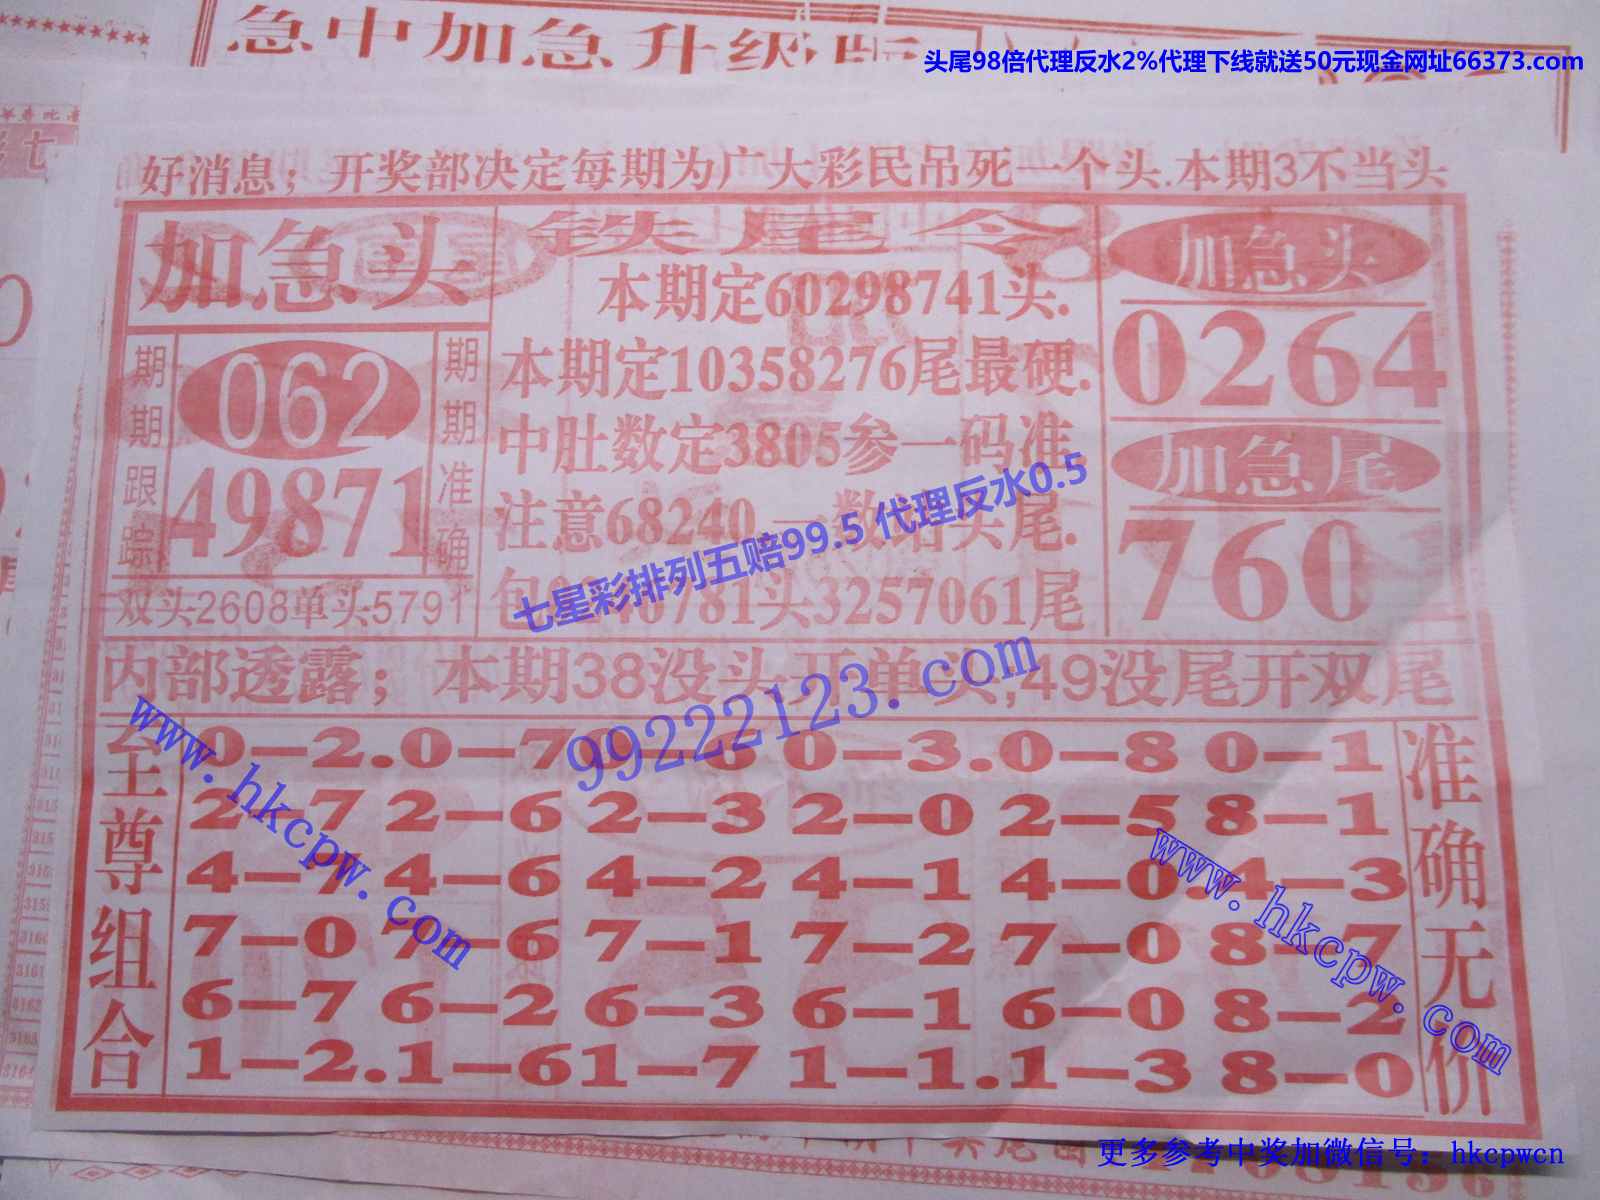 急中加急升级版
头尾98倍代理反水2%代理下线就送50元现金网址66373.com
好消息；开奖部决定每期为广大彩民吊死一个头.本期3不当头
加急头
期期跟踪
062
49871
期期准确
双头2608单头5791
铁尾令
本期定60298741头.
本期定10358276尾最硬.
中肚数定3805参一码准.
注意68240.一数若头尾.
781头3257061尾
七星彩排列五赔99.5 代理反水0.5
加急头
0264
加急尾
760
内部透露；本期38没头开单头,49没尾开双尾
99222123.com
至尊组合
0—2.0—7 0—6 0—3.0—8 0—1
2—7 2—6 2—3 2—0 2—5 8—1
4—7 4—6 4—2 4—1 4—0 4—3
7—0 7—6 7—1 7—2 7—0 8—7
6—7 6—2 6—3 6—1 6—0 8—2
1—2.1—6 1—7 1—1.1—3 8—0
准确无价
www.hkcpw.com
www.hkcpw.com
更多参考中奖加微信号：hkcpwcn